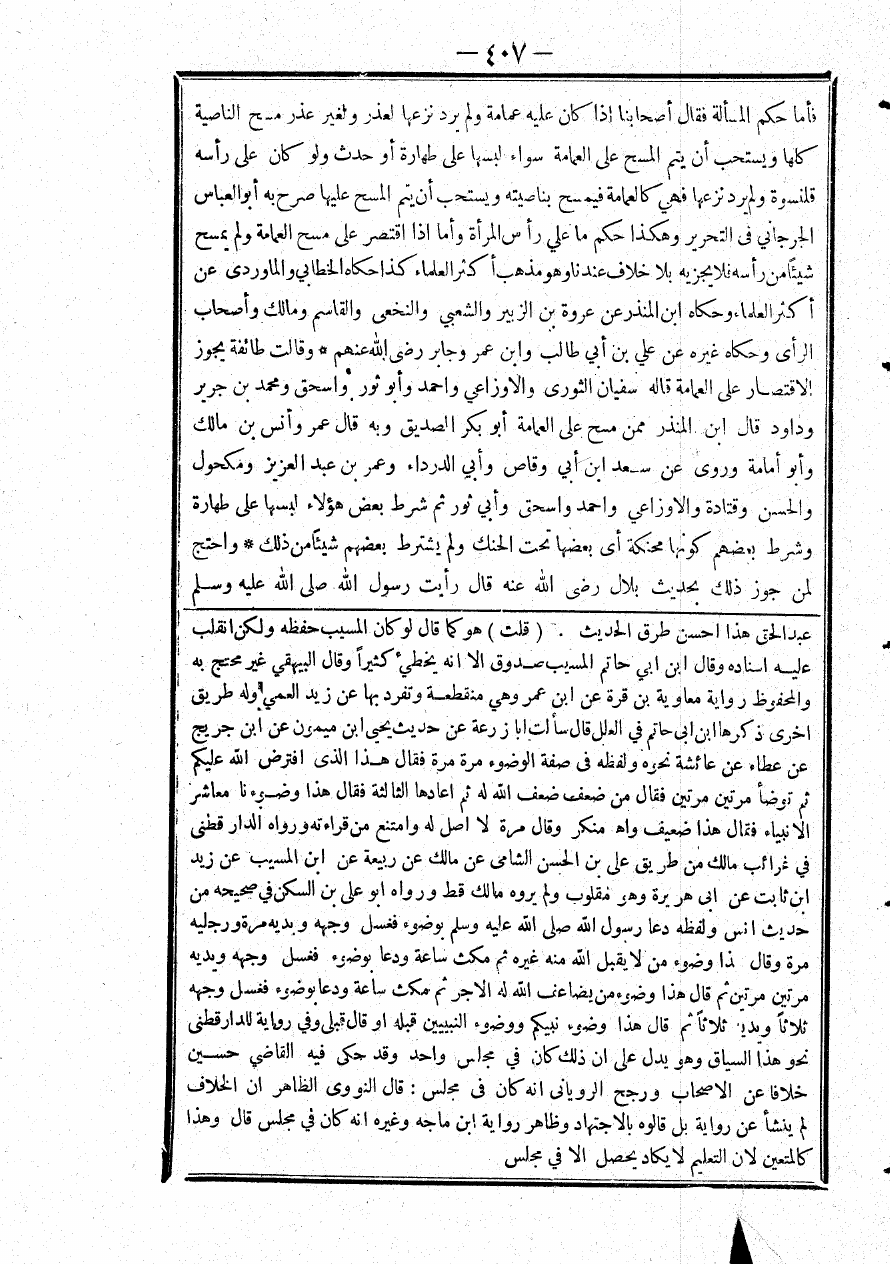 — ٤٠٧ —
فأما حكم المسألة فقال أصحابنا إذا كان عليه عمامة ولم يرد نزعها لعذر ولغير عذر مسح الناصية
كلها ويستحب أن يتم المسح على العمامة سواء لبسها على طهارة أو حدث ولو كان على رأسه
قلنسوة ولم يرد نزعها فهي كالعمامة فيمسح بناصيته ويستحب أن يتم المسح عليها صرح به أبو العباس
الجرجاني فى التحرير وهكذا حكم ما علي رأس المرأة وأما اذا اقتصر على مسح العمامة ولم يمسح
شيئاً من رأسه فلا يجزيه بلا خلاف عندنا وهو مذهب أكثر العلماء كذا حكاه الخطابي والماوردى عن
أكثر العلماء وحكاه ابن المنذر عن عروة بن الزبير والشعبي والنخعى والقاسم ومالك وأصحاب
الرأى وحكاه غيره عن علي بن أبي طالب وابن عمر وجابر رضى الله عنهم * وقالت طائفة يجوز
الاقتصار على العمامة قاله سفيان الثورى والاوزاعي واحمد وأبو ثور واسحق ومحمد بن جرير
وداود قال ابن المنذر ممن مسح على العمامة أبو بكر الصديق وبه قال عمر وأنس بن مالك
وأبو أمامة وروى عن سعد ابن أبي وقاص وأبي الدرداء وعمر بن عبد العزيز ومكحول
والحسن وقتادة والاوزاعي واحمد واسحق وأبي ثور ثم شرط بعض هؤلاء لبسها على طهارة
وشرط بعضهم كونها محنكة أى بعضها تحت الحنك ولم يشترط بعضهم شيئاً من ذلك * واحتج
لمن جوز ذلك بحديث بلال رضى الله عنه قال رأيت رسول الله صلى الله عليه وسلم
عبد الحق هذا احسن طرق الحديث . ( قلت ) هو كما قال لو كان المسيب حفظه ولكن انقلب
عليه اسناده وقال ابن ابي حاتم المسيب صدوق الا انه يخطئ كثيراً وقال البيهقي غير محتج به
والمحفوظ رواية معاوية بن قرة عن ابن عمر وهي منقطعة وتفرد بها عن زيد العمي وله طريق
اخرى ذكرها ابن ابى حاتم في العلل قال سألت ابا زرعة عن حديث يحيى ابن ميمون عن ابن جريج
عن عطاء عن عائشة نحوه ولفظه فى صفة الوضوء مرة مرة فقال هذا الذى افترض الله عليكم
ثم توضأ مرتين مرتين فقال من ضعف ضعف الله له ثم اعادها الثالثة فقال هذا وضوءنا معاشر
الانبياء فقال هذا ضعيف واه منكر وقال مرة لا اصل له وامتنع من قراءته ورواه الدار قطنى
في غرائب مالك من طريق على بن الحسن الشامى عن مالك عن ربيعة عن ابن المسيب عن زيد
ابن ثابت عن ابى هريرة وهو مقلوب ولم يروه مالك قط ورواه ابو على بن السكن في صحيحه من
حديث انس ولفظه دعا رسول الله صلى الله عليه وسلم بوضوء فغسل وجهه ويديه مرة ورجليه
مرة وقال ذا وضوء من لا يقبل الله منه غيره ثم مكث ساعة ودعا بوضوء فغسل وجهه ويديه
مرتين مرتين ثم قال هذا وضوء من يضاعف الله له الاجر ثم مكث ساعة ودعا بوضوء فغسل وجهه
ثلاثاً ويديه ثلاثاً ثم قال هذا وضوء نبيكم ووضوء النبيين قبله او قال قبلى وفي رواية للدارقطنى
نحو هذا السياق وهو يدل على ان ذلك كان في مجلس واحد وقد حكى فيه القاضي حسين
خلافا عن الاصحاب ورجح الرويانى انه كان فى مجلس : قال النووى الظاهر ان الخلاف
لم ينشأ عن رواية بل قالوه بالاجتهاد وظاهر رواية ابن ماجه وغيره انه كان في مجلس قال وهذا
كالمتعين لان التعليم لا يكاد يحصل الا في مجلس